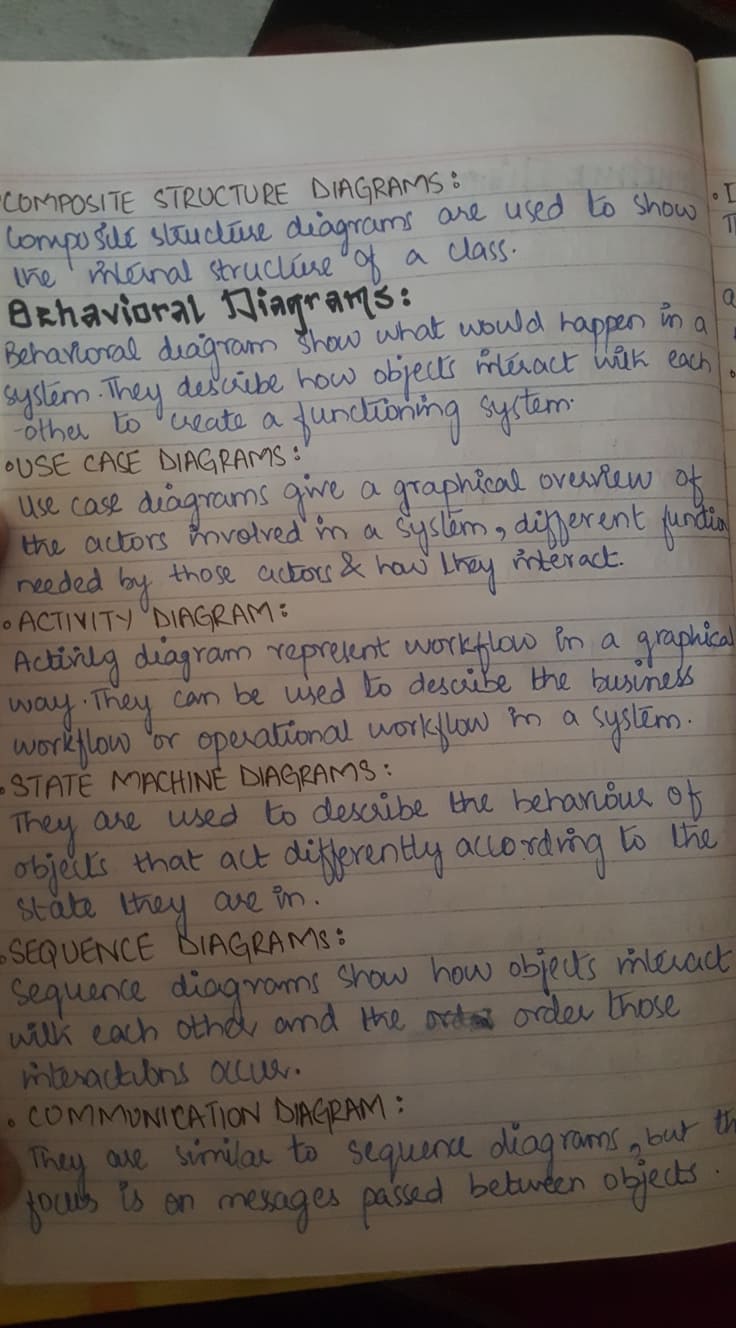 COMPOSITE STRUCTURE DIAGRAMS:
Composite structure diagrams are used to show
the internal structure of a class.
Behavioral Diagrams:
Behavioral diagram show what would happen in a
system. They describe how objects interact with each
-other to create a functioning system.
•USE CASE DIAGRAMS:
Use case diagrams give a graphical overview of
the actors involved in a system, different functio
needed by those actors & how they interact.
•ACTIVITY DIAGRAM:
Activity diagram represent workflow in a graphical
way. They can be used to describe the business
workflow or operational workflow in a system.
•STATE MACHINE DIAGRAMS:
They are used to describe the behaviour of
objects that act differently according to the
state they are in.
•SEQUENCE DIAGRAMS:
Sequence diagrams show how objects interact
with each other and the order those
interactions occur.
• COMMUNICATION DIAGRAM:
They are similar to sequence diagrams, but th
focus is on mesages passed between objects.